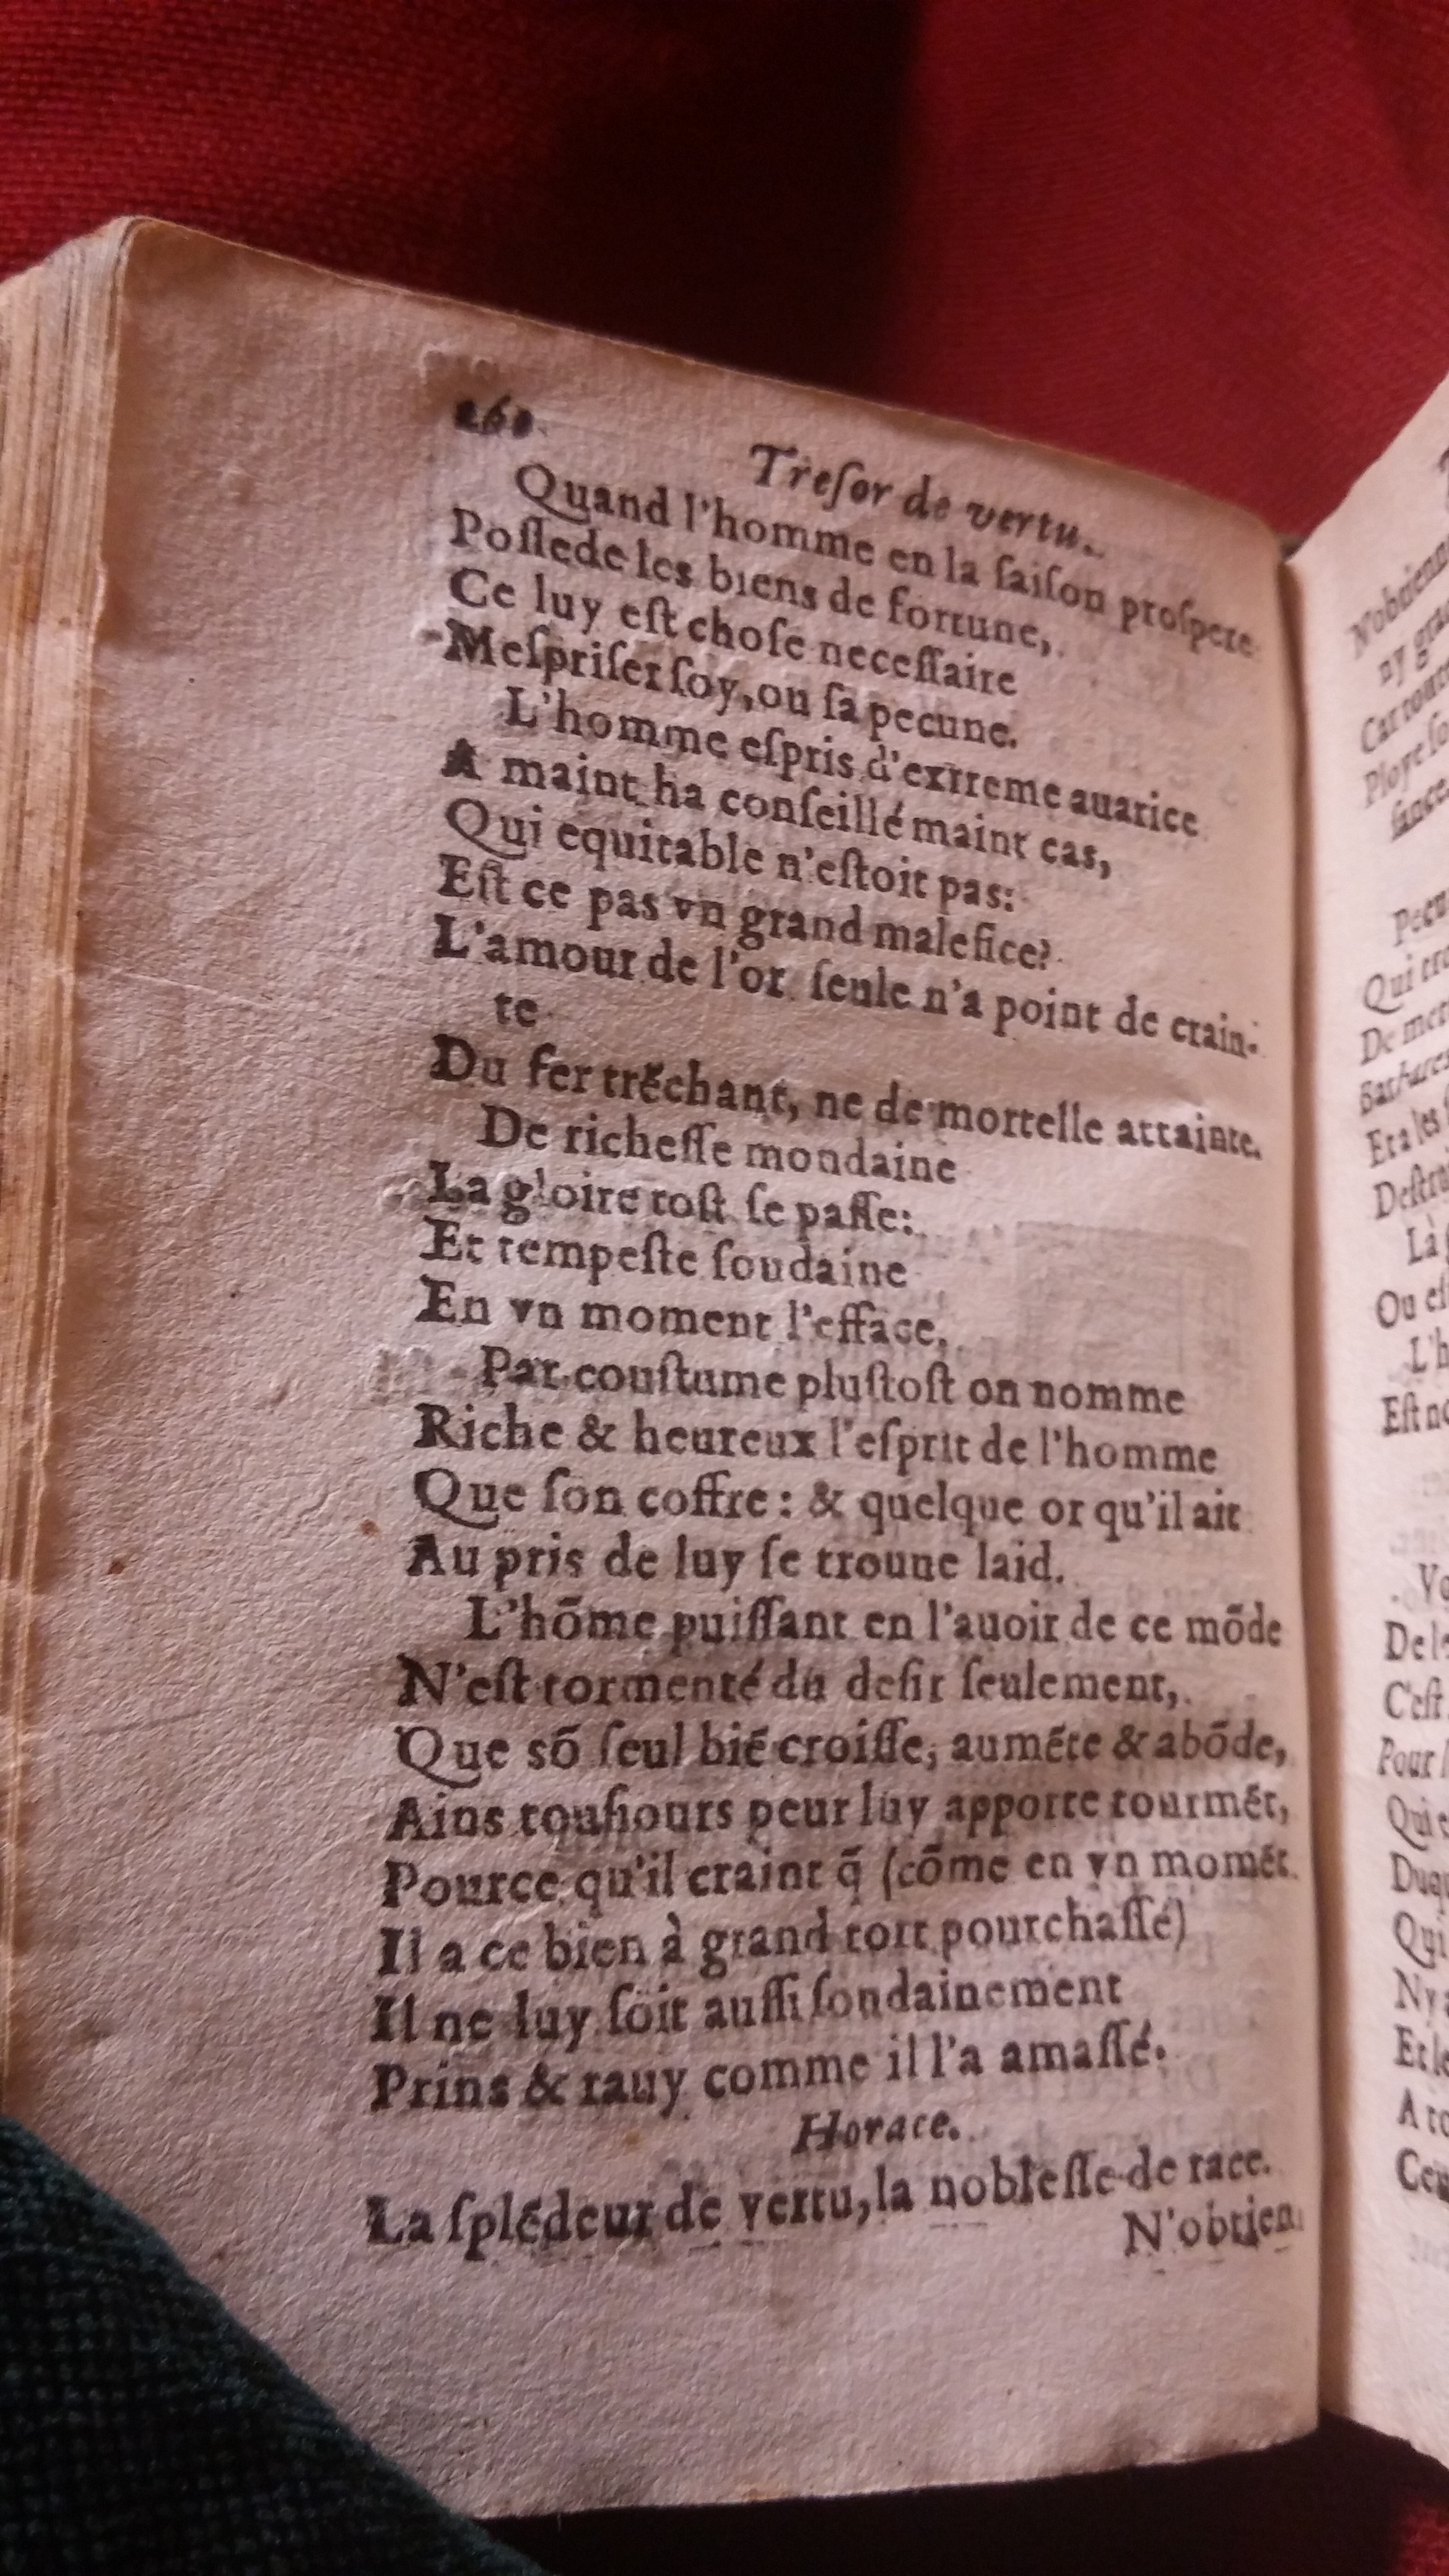 260
Treſor de vertu.
Quand l'homme en la ſaiſon proſpere
Poſſede les biens de fortune,
Ce luy eſt choſe neceſſaire
Meſpriſer ſoy, ou ſa pecune.
L'homme eſpris d'extreme auarice
A maint ha conſeillé maint cas,
Qui equitable n'eſtoit pas:
Eſt ce pas vn grand malefice?
L'amour de l'or ſeule n'a point de crain-
te
Du fer trẽchant, ne de mortelle attainte.
De richeſſe mondaine
La gloire toſt ſe paſſe:
Et tempeſte ſoudaine
En vn moment l'efface.
Par couſtume pluſtoſt on nomme
Riche & heureux l'eſprit de l'homme
Que ſon coffre: & quelque or qu'il ait
Au pris de luy ſe trouue laid.
L'hõme puiſſant en l'auoir de ce mõde
N'eſt tormenté du deſir ſeulement,
Que sõ ſeul biẽ croiſſe, aumẽte & abõde,
Ains touſiours peur luy apporte tourmẽt,
Pource qu'il craint q̃ (cõme en vn momẽt
Il a ce bien à grand tort pourchaſſé)
Il ne luy ſoit auſſi ſoudainement
Prins & rauy comme il l'a amaſſé.
Horace.
La ſplẽdeur de vertu, la nobleſſe de race.
N'obtien
Nobtienn
ny
Car
Ploye
Qui
De
Deſtru
Là
Ou
L'h
Eſt
Pour
Qui
Qui
Ny
A